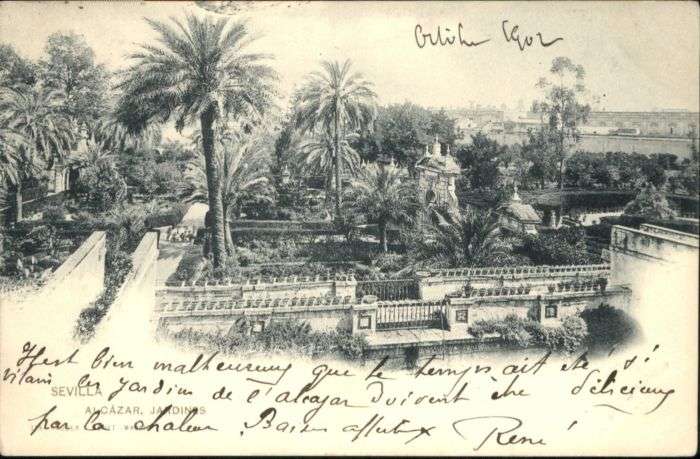 Octobre 1902
Il est bien malheureux que le temps ait été si
vilain les jardins de l'alcazar doivent être délicieux
par la chaleur. Baisers affectueux René
SEVILLA
ALCÁZAR, JARDINES